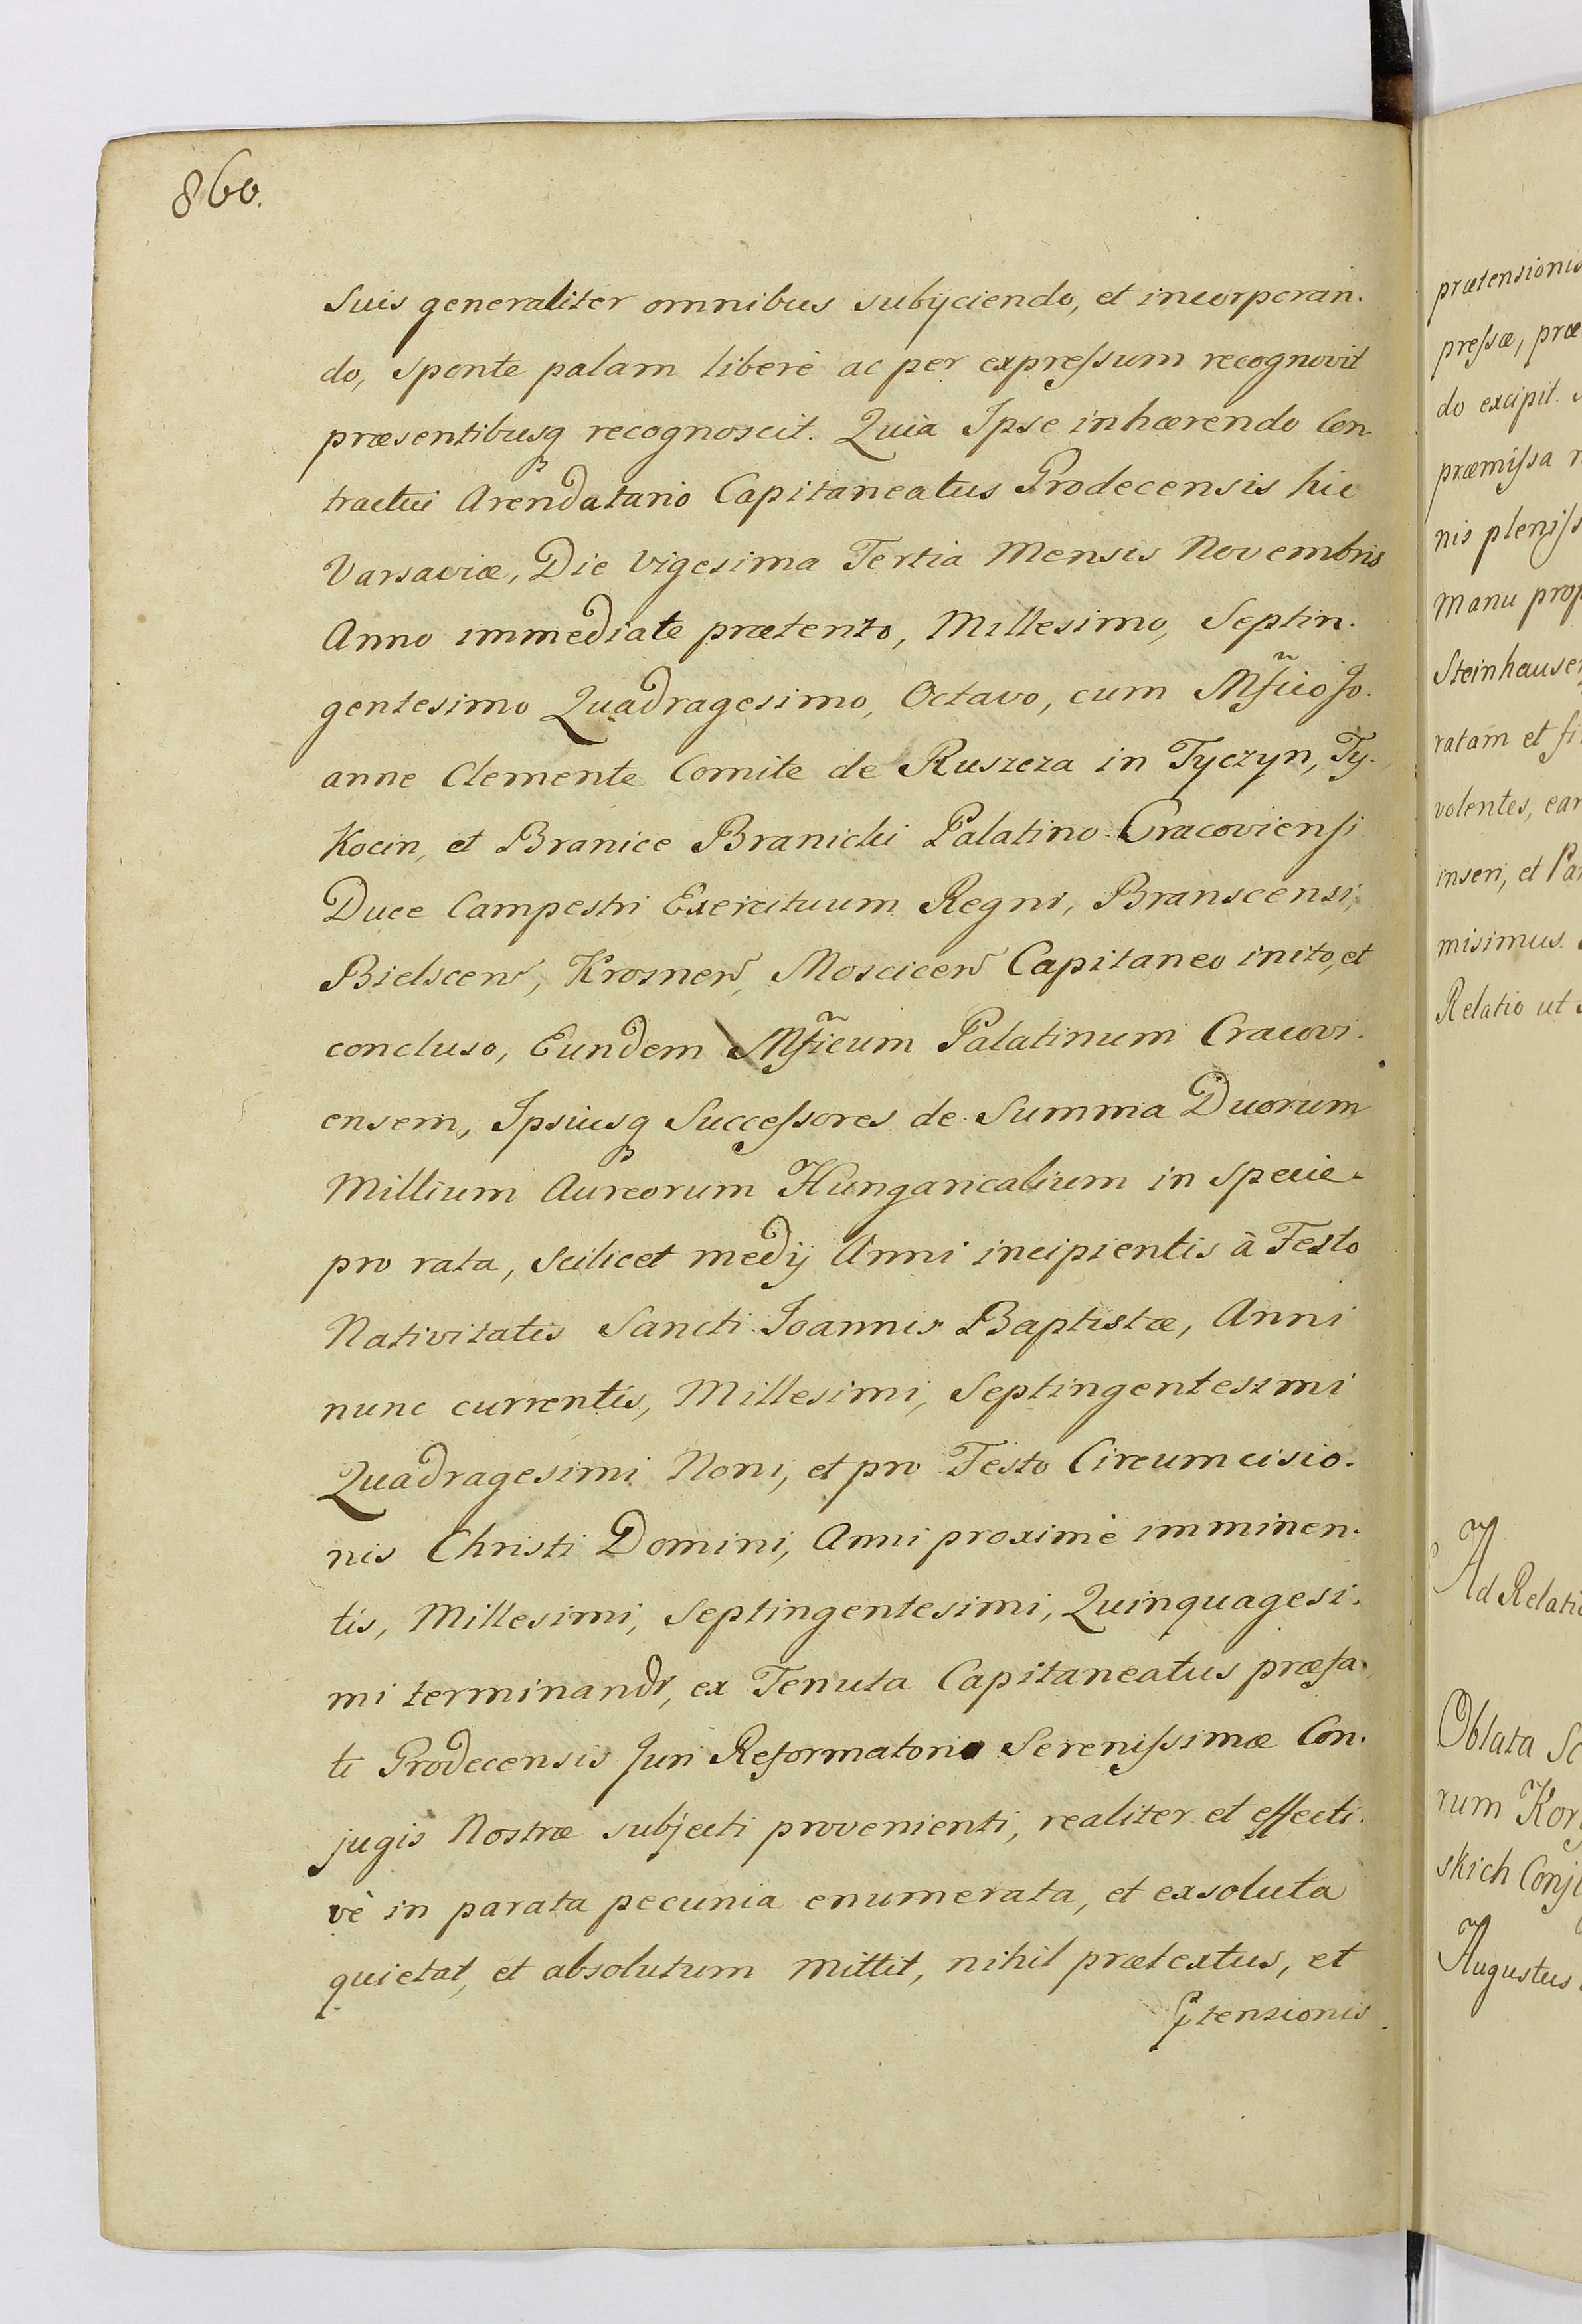 860.
suis generaliter omnibus subijciendo, et incorporan.
do, sponte palam liberè ac per expressum recognovit
præsentibusq recognoscit. Quia Ipse inhærendo Con
tractui Arendatario Capitaneatus Grodecensis hic
Varsaviæ, Die Vigesima Tertia Mensis Novembris
Anno immediate prætento, Millesimo, Septin.
gentesimo Quadragesimo, Octavo, cum Mfico Jo.
anne Clemente Comite de Ruszcza in Tyczyn, Ty.
kocin, et Branice Branicki Palatino Cracoviensi
Duce Campestri Exercituum Regni, Branscensi,
Bielscen, Krosnen, Moscicen Capitaneo inito, et
concluso, Eundem Mficum Palatinum Cracovi.
ensem, Ipsiusq Successores de Summa Duorum
Millium Aureorum Hungaricalium in specie
pro rata, scilicet medij Anni incipientis à Festo
Nativitatis Sancti Joannis Baptistæ, Anni
nunc currentis, Millesimi, Septingentesimi
Quadragesimi Noni, et pro Festo Circumcisio.
nis Christi Domini, Anni proximè imminen.
tis, Millesimi, Septingentesimi, Quinquagesi.
mi terminandi, ex Tenuta Capitaneatus præfa.
ti Grodecensis Juri Reformatorio Serenissimæ Con.
jugis Nostræ subjecti provenienti, realiter et effecti.
vè in parata pecunia enumerata, et exsoluta
quietat, et absolutum mittit, nihil prætextus, et
ptensionis
prætensionis
pressæ, præ
do excipit.
præmissa
nis pleniss
Manu prop
Steinhausen
ratam et fi
volentes, ean
inseri, et Par
misimus.
Relatio ut
Ad Relatio
Oblata Sc
rum Kory
skich Conju
Augustus